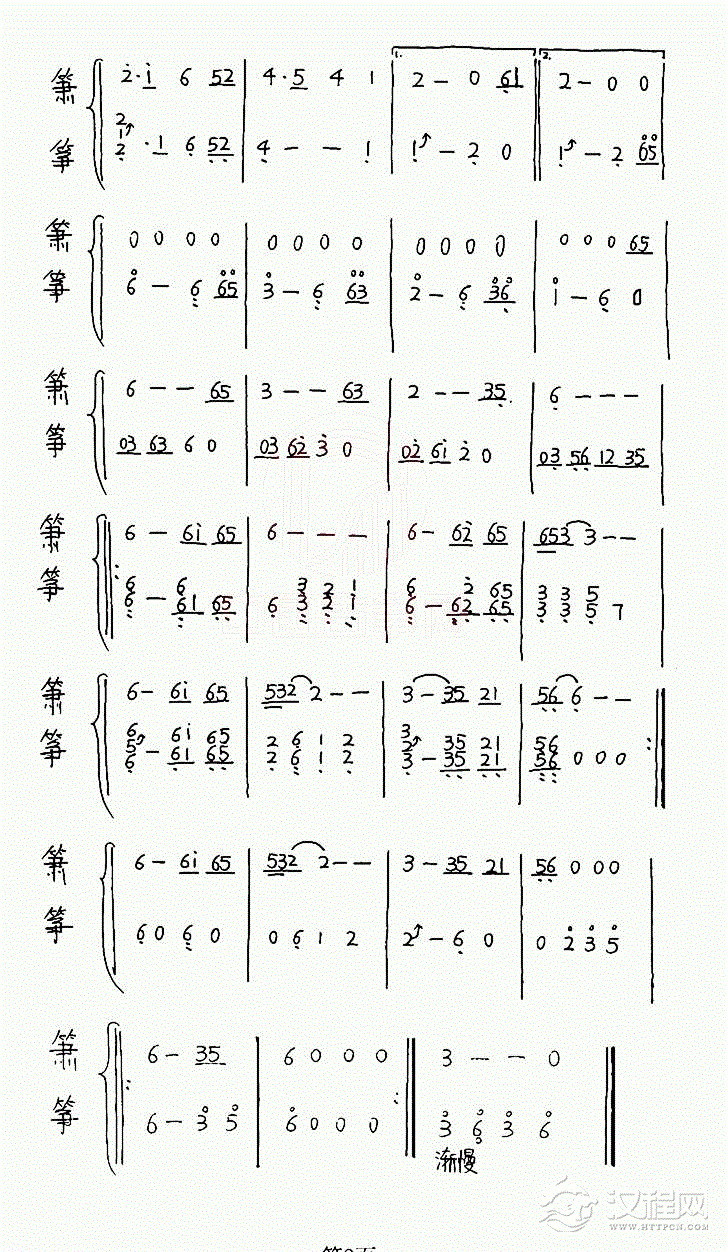 1. 2.
箫 2·1 6 52 | 4·5 4 1 | 2 – 0 61 | 2 – 0 0
筝 2·1 6 52 | 4 – – 1 | 1 – 2 0 | 1 – 2 65
箫 0 0 0 0 | 0 0 0 0 | 0 0 0 0 | 0 0 0 65
筝 6 – 6 65 | 3 – 6 63 | 2 – 6 36 | 1 – 6 0
箫 6 – – 65 | 3 – – 63 | 2 – – 35 | 6 – – –
筝 03 63 6 0 | 03 62 3 0 | 02 61 2 0 | 03 56 12 35
箫 6 – 61 65 | 6 – – – | 6 – 62 65 | 653 3 – –
6 6 3 2 1 6 2 65 3 3 5
筝 6 – 61 65 | 6 3 2 1 | 6 – 62 65 | 3 3 5 7
箫 6 – 61 65 | 532 2 – – | 3 – 35 21 | 56 6 – –
6 5 61 65 2 6 1 2 3 2 35 21 56
筝 6 – 61 65 | 2 6 1 2 | 3 – 35 21 | 56 0 0 0
箫 6 – 61 65 | 532 2 – – | 3 – 35 21 | 56 0 0 0
筝 6 0 6 0 | 0 6 1 2 | 2 – 6 0 | 0 2 3 5
箫 6 – 35 | 6 0 0 0 | 3 – – 0
筝 6 – 3 5 | 6 0 0 0 | 3 6 3 6
渐慢
汉程网
WWW.HTTPCN.COM